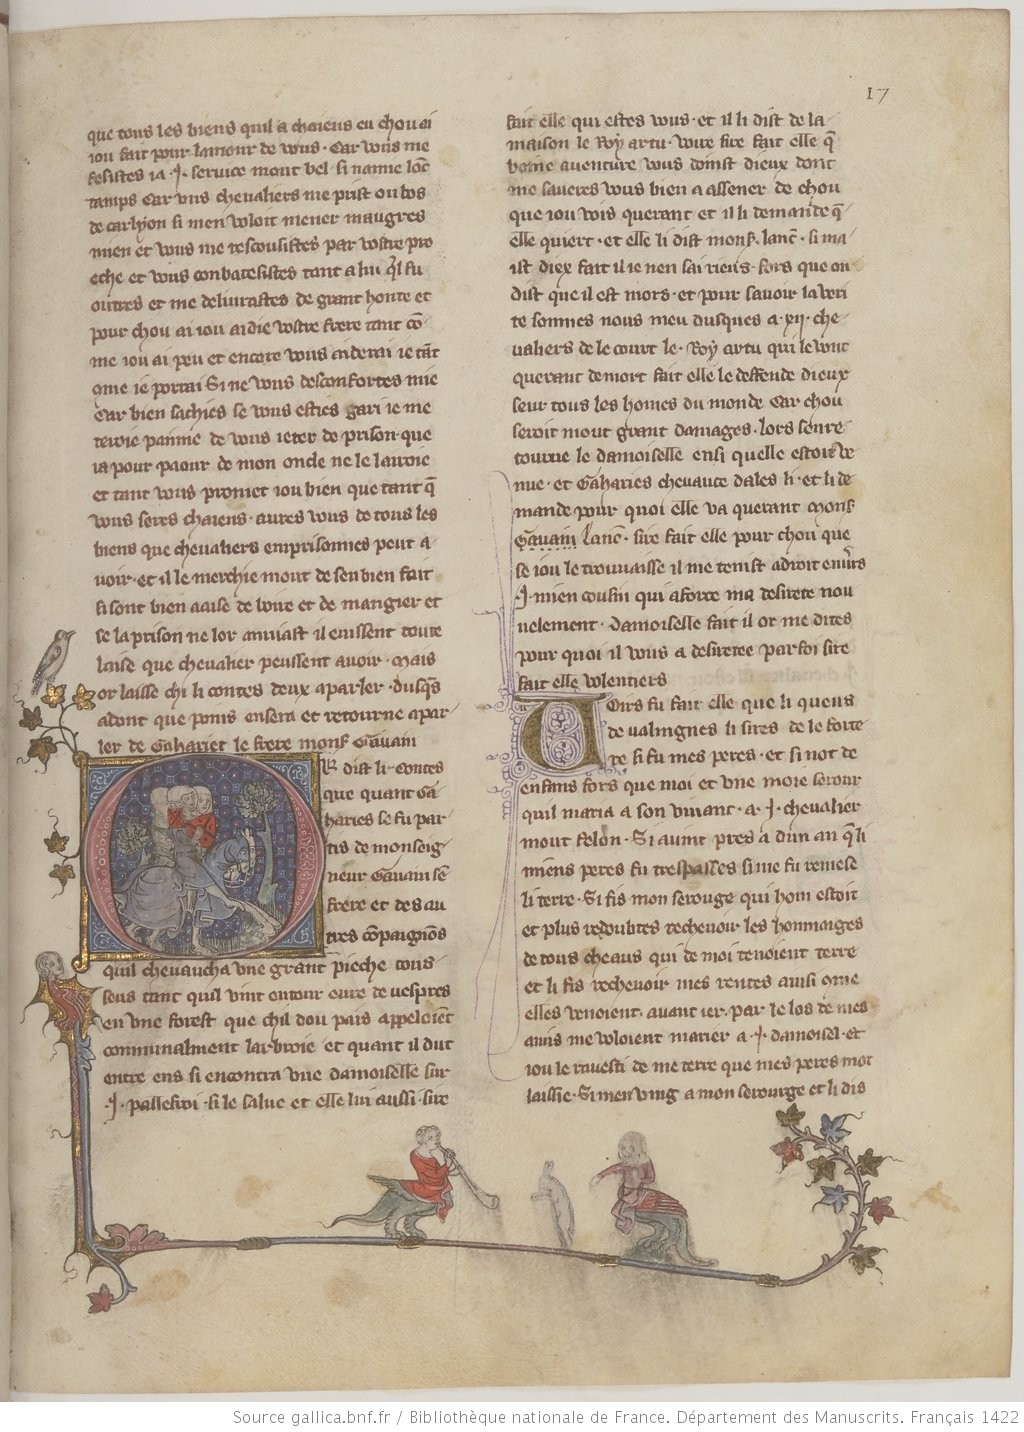 17
que tous les biens quil a chaiens eu chou ai
iou fait pour lamour de vous · Car vous me
fesistes ia · j · service mout bel si namie lōc
tamps Car vns chevaliers me prist ou bos
de carlyon si men voloit mener maugres
mien et vous me rescousistes par vostre pro
eche et vous conbatesistes tant a lui ql fu
outres et me delivrastes de grant honte et
pour chou ai iou aidie vostre frere tant cō
me iou ai peu et encore vous aiderai ie tāt
qme ie porrai Si ne vous desconfortes mie
Car bien sachies se vous esties gari ie me
teroie painne de vous ieter de prison · que
ia pour paour de mon oncle ne le lairoie
et tant vous promet iou bien que tant q̄
vous seres chaiens · aures vous de tous les
biens que chevaliers emprisonnes peut a
voir · et il le merchie mout de sen bien fait
si sont bien aaise de boire et de mangier et
se la prison ne lor anuiast il eussent toute
laise que chevalier peussent avoir · Mais
or laisse chi li contes deux a parler · dusqs
adont que poins en sera et retourne a par
ler de Gahariet le frere monſ Gavain
R dist li contes
que quant Ga
haries se fu par
tis de monseig
neur Gavain sē
frere et des au
tres cōpaignōs
quil chevaucha vne grant pieche tous
seus tant quil vint entour eure de vespres
en vne forest que chil dou pais appeloiēt
communalment larbroie et quant il dut
entre ens si encontra vne damoiselle sur
· j · palefroi · si le salue et elle lui aussi · sire
fait elle qui estes vous · et il li dist de la
maison le Roy artu · voire sire fait elle q̄
boine auenture vous doinst dieux dont
me saueres vous bien a assener de chou
que iou vois querant et il li demande q̄
elle quiert · et elle li dist monſ · lanc̄ · si ma
ist diex fait il ie nen sai riens · fors que on
dist que il est mors · et pour savoir la veri
te sommes nous meu dusques a · xij · che
valiers de le court le · Roy artu qui le vont
querant de mort fait elle le deffende dieux
seur tous les homes du monde Car chou
seroit mout grant damages · lors sen re
tourne le damoiselle ensi quelle estoit ve
nue · et Gaharies chevauce dales li · et li de
mande pour quoi elle va querant monſ
Gauain lanc̄ · sire fait elle pour chou que
se iou le trouvaisse il me tenist a droit envers
· j · mien cousin qui a force ma desirete nou
uelement · damoiselle fait il or me dites
pour quoi il vous a desiretee par foi sire
fait elle volentiers
Voirs fu fait elle que li quens
de valingnes li sires de le forte
re si fu mes peres · et si not de
enfans fors que moi et vne moie serour
quil maria a son viuant · a · j · chevalier
mout felon · Si auint pres a dun an q̄ li
miens peres fu trespasses si me fu remese
li terre · Si fis mon serouge qui hom estoit
et plus redoubtes rechevoir les hommaiges
de tous cheaus qui de moi tenoient terre
et li fis rechevoir mes rentes ausi qme
elles venoient · auant ier · par le los de mes
amis me voloient marier a · j · damoisel · et
iou le ravesti de me terre que mes peres mot
laissie · Si men ving a mon serourge et li dis
Source gallica.bnf.fr / Bibliothèque nationale de France. Département des Manuscrits. Français 1422